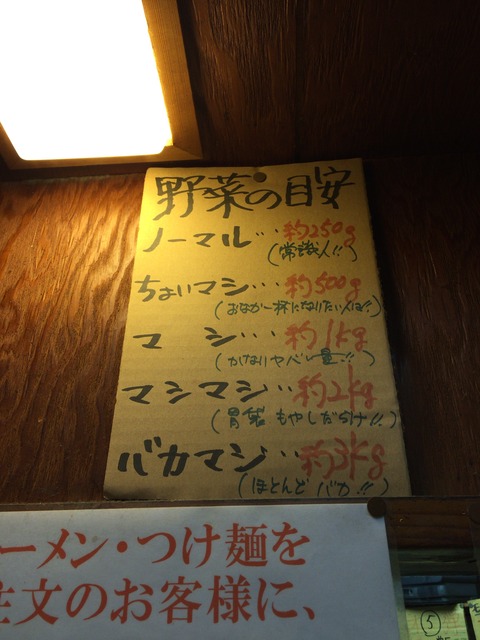 野菜の目安
ノーマル…約250g
(常識人!!)
ちょいマシ…約500g
(おなか一杯になりたい人は!!)
マシ…約1kg
(かなりヤベー量!!)
マシマシ…約2kg
(胃袋もやしだらけ!!)
バカマシ…約3kg
(ほとんどバカ!!)
ーメン・つけ麺を
注文のお客様に、
⑤